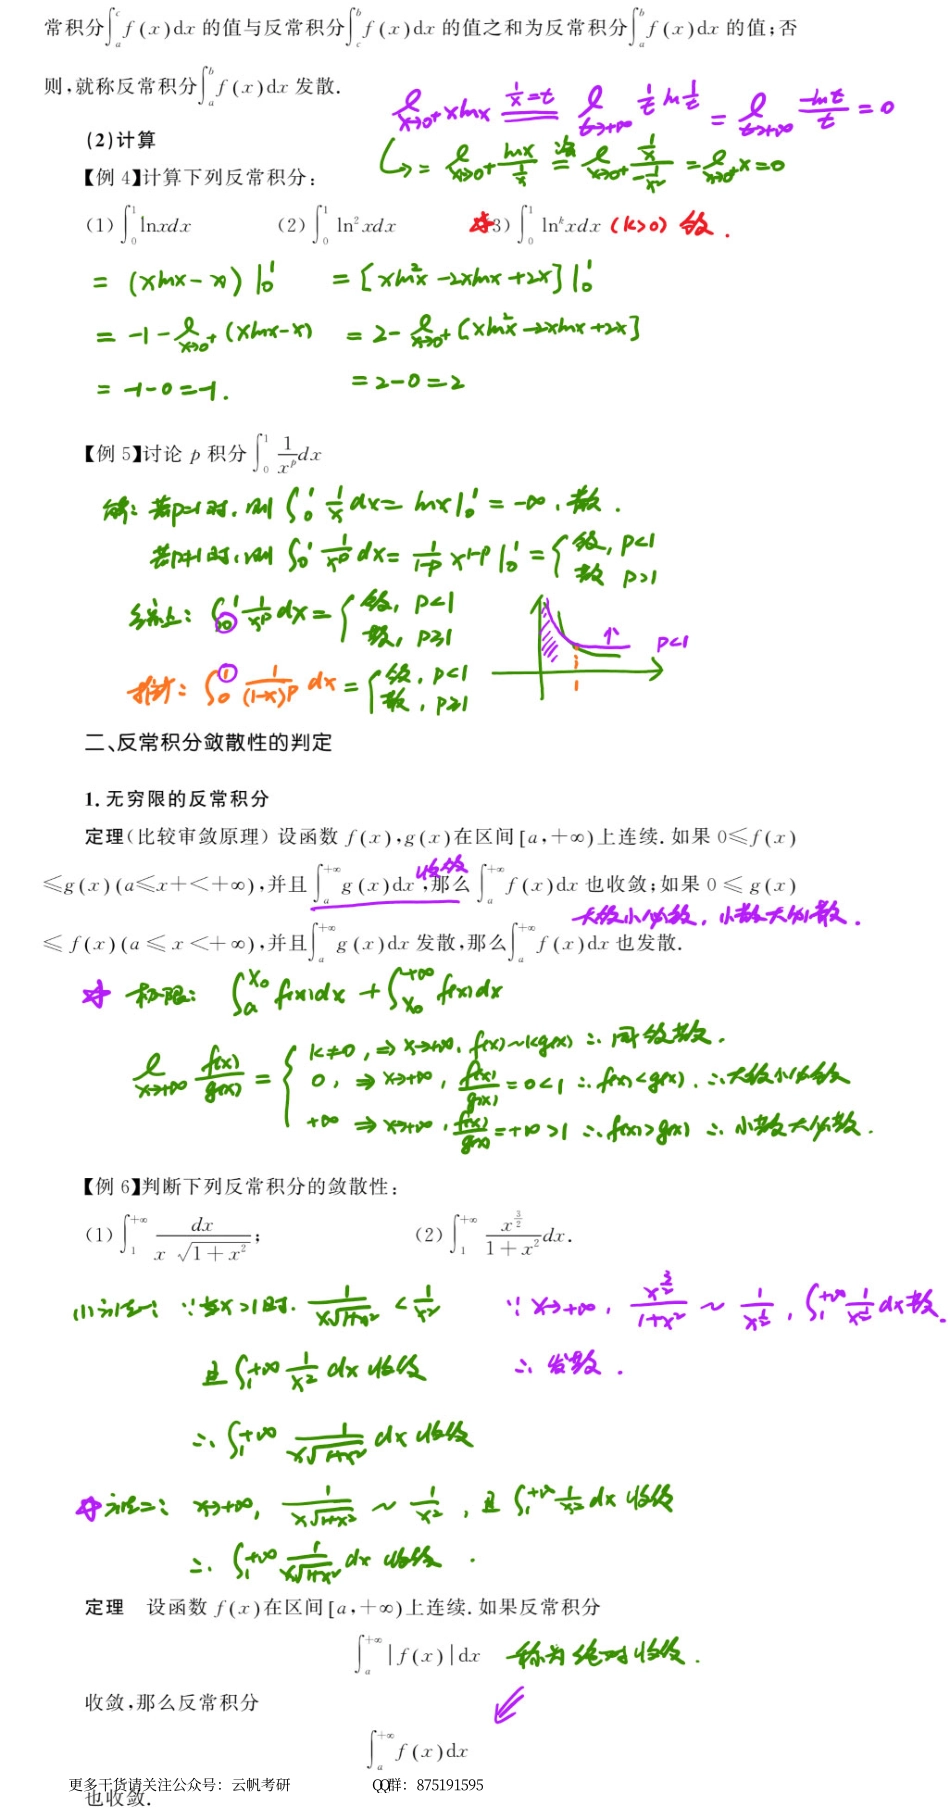 常积分∫_a^c f(x)dx 的值与反常积分∫_c^b f(x)dx 的值之和为反常积分∫_a^b f(x)dx 的值;否
则,就称反常积分∫_a^b f(x)dx 发散.
lim_{x→0⁺} xlnx =(1/x=t)= lim_{t→+∞} 1/t ln 1/t = lim_{t→+∞} -lnt/t = 0
(2)计算
↳ = lim_{x→0⁺} lnx/(1/x) =洛= lim_{x→0⁺} (1/x)/(-1/x²) = lim_{x→0⁺} -x=0
【例 4】计算下列反常积分:
(1)∫_0^1 lnxdx (2)∫_0^1 ln²xdx ☆3)∫_0^1 ln^k xdx (k>0) 敛.
= (xlnx-x)|_0^1 = [xln²x-2xlnx+2x]|_0^1
= -1-lim_{x→0⁺}(xlnx-x) = 2-lim_{x→0⁺}[xln²x-2xlnx+2x]
= -1-0=-1. =2-0=2
【例 5】讨论 p 积分∫_0^1 1/x^p dx
解: 若p=1时, 则∫_0^1 1/x dx= lnx|_0^1 = -∞, 散.
若p≠1时, 则∫_0^1 1/x^p dx= 1/(1-p) x^{1-p}|_0^1 = { 敛, p<1
散 p>1
综上: ∫_0^1 1/x^p dx = { 敛, p<1
散, p≥1
1 p<1
推广: ∫_0^1 1/(1-x)^p dx = { 敛, p<1
散, p≥1
二、反常积分敛散性的判定
1. 无穷限的反常积分
定理(比较审敛原理) 设函数 f(x),g(x)在区间[a,+∞)上连续. 如果 0≤f(x)
≤g(x)(a≤x+<+∞),并且∫_a^{+∞} g(x)dx 收敛,那么∫_a^{+∞} f(x)dx 也收敛;如果 0≤g(x)
大敛小必敛, 小散大必散.
≤f(x)(a≤x<+∞),并且∫_a^{+∞} g(x)dx 发散,那么∫_a^{+∞} f(x)dx 也发散.
☆ 极限: ∫_a^{x₀} f(x)dx + ∫_{x₀}^{+∞} f(x)dx
lim_{x→+∞} f(x)/g(x) = { k≠0, ⇒ x→+∞, f(x)~kg(x) ∴ 同敛散.
0, ⇒ x→+∞, f(x)/g(x)=0<1 ∴ f(x)<g(x), ∴大敛小必敛
+∞ ⇒ x→+∞, f(x)/g(x)=+∞>1 ∴ f(x)>g(x) ∴ 小散大必散.
【例 6】判断下列反常积分的敛散性:
(1)∫_1^{+∞} dx/(x√(1+x²)); (2)∫_1^{+∞} x^{3/2}/(1+x²) dx.
(1)方法一: ∵当x>1时, 1/(x√(1+x²)) < 1/x² ∵ x→+∞, x^{3/2}/(1+x²) ~ 1/x^{1/2}, ∫_1^{+∞} 1/x^{1/2} dx散.
且∫_1^{+∞} 1/x² dx 收敛 ∴ 发散.
∴ ∫_1^{+∞} 1/(x√(1+x²)) dx 收敛
☆方法二: x→+∞, 1/(x√(1+x²)) ~ 1/x², 且∫_1^{+∞} 1/x² dx 收敛
∴ ∫_1^{+∞} 1/(x√(1+x²)) dx 收敛.
定理 设函数 f(x)在区间[a,+∞)上连续. 如果反常积分
∫_a^{+∞} |f(x)|dx 称为绝对收敛.
收敛,那么反常积分
∫_a^{+∞} f(x)dx
更多干货请关注公众号:云帆考研 QQ群:875191595
也收敛.